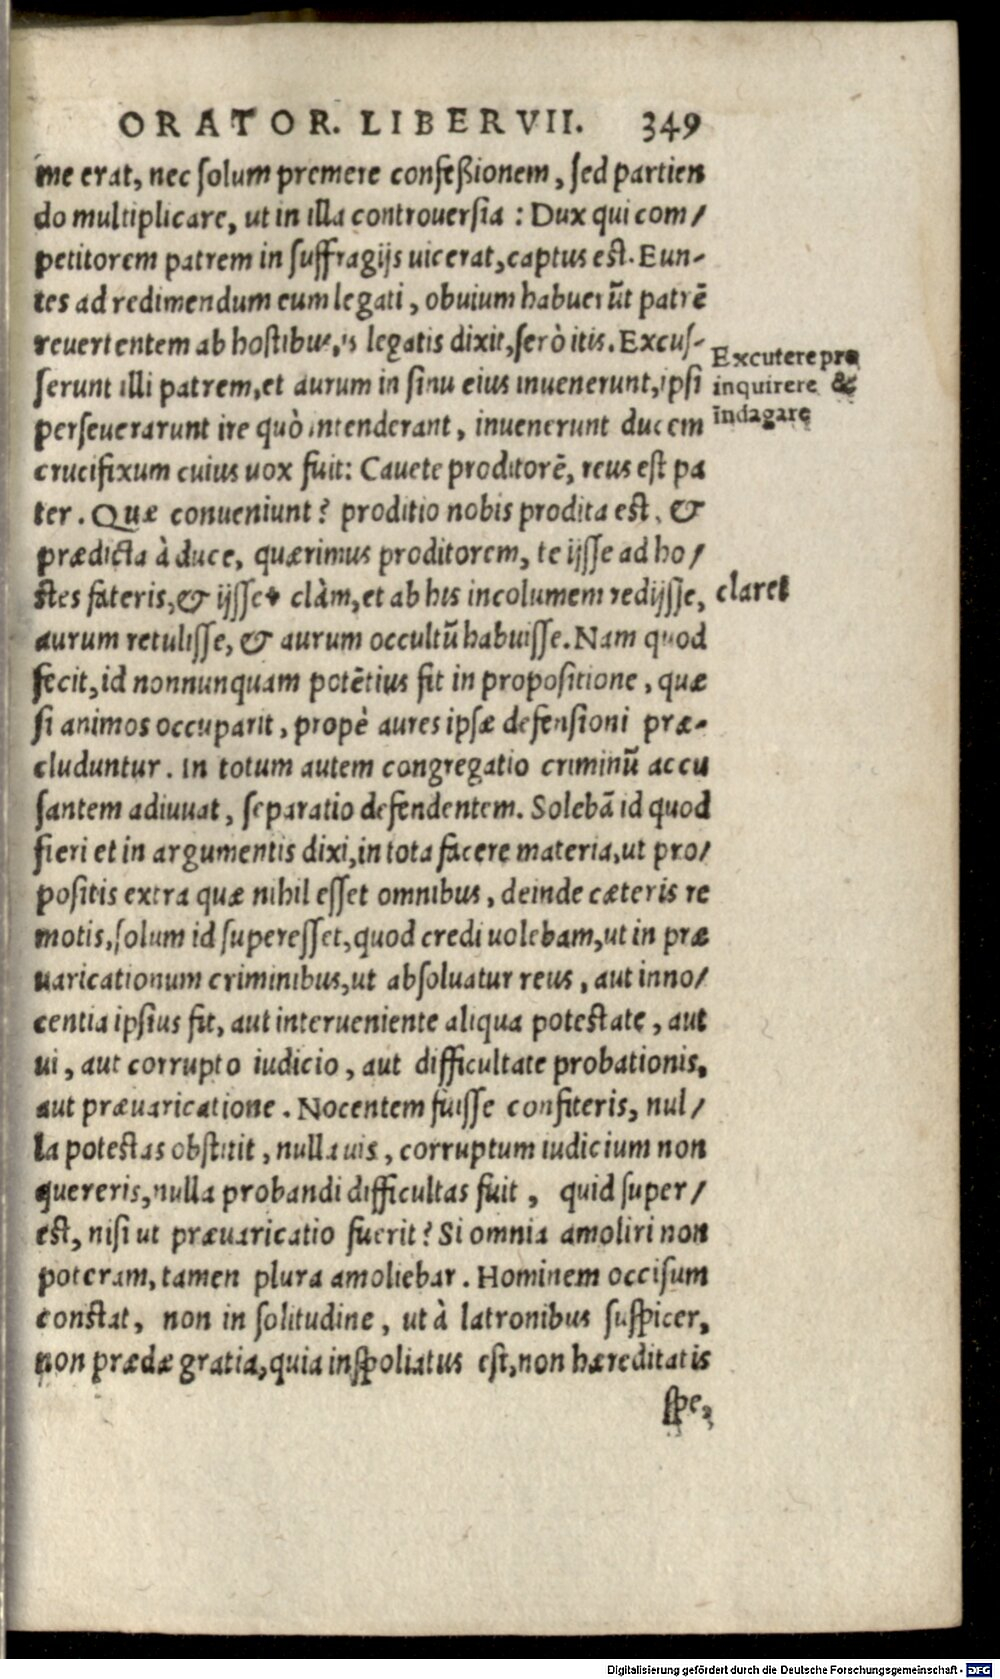 ORATOR. LIBER VII. 349
me erat, nec ſolum premere confeßionem, ſed partien
do multiplicare, ut in illa controuerſia : Dux qui com/
petitorem patrem in ſuffragijs uicerat, captus eſt. Eun-
tes ad redimendum eum legati, obuium habuerūt patrē
reuertentem ab hoſtibus, is legatis dixit, ſerò itis. Excuſ-
ſerunt illi patrem, et aurum in ſinu eius inuenerunt, ipſi
Excutere pro
inquirere &
indagare
perſeuerarunt ire quò intenderant, inuenerunt ducem
crucifixum cuius uox fuit: Cauete proditorē, reus eſt pa
ter. Quæ conueniunt? proditio nobis prodita eſt, &
prædicta à duce, quærimus proditorem, te ijſſe ad ho/
ſtes fateris, & ijſſe clàm, et ab his incolumem redijſſe,
claret
aurum retuliſſe, & aurum occultū habuiſſe. Nam quod
fecit, id nonnunquam potētius fit in propoſitione, quæ
ſi animos occuparit, propè aures ipſæ defenſioni præ-
cluduntur. In totum autem congregatio criminū accu
ſantem adiuuat, ſeparatio defendentem. Solebā id quod
fieri et in argumentis dixi, in tota facere materia, ut pro/
poſitis extra quæ nihil eſſet omnibus, deinde cæteris re
motis, ſolum id ſupereſſet, quod credi uolebam, ut in præ
uaricationum criminibus, ut abſoluatur reus, aut inno/
centia ipſius fit, aut interueniente aliqua poteſtate, aut
ui, aut corrupto iudicio, aut difficultate probationis,
aut præuaricatione. Nocentem fuiſſe confiteris, nul/
la poteſtas obſtitit, nulla uis, corruptum iudicium non
quereris, nulla probandi difficultas fuit, quid ſuper/
eſt, niſi ut præuaricatio fuerit? Si omnia amoliri non
poteram, tamen plura amoliebar. Hominem occiſum
conſtat, non in ſolitudine, ut à latronibus ſuſpicer,
non prædæ gratia, quia inſpoliatus eſt, non hæreditatis
ſpe,
Digitalisierung gefördert durch die Deutsche Forschungsgemeinschaft - DFG